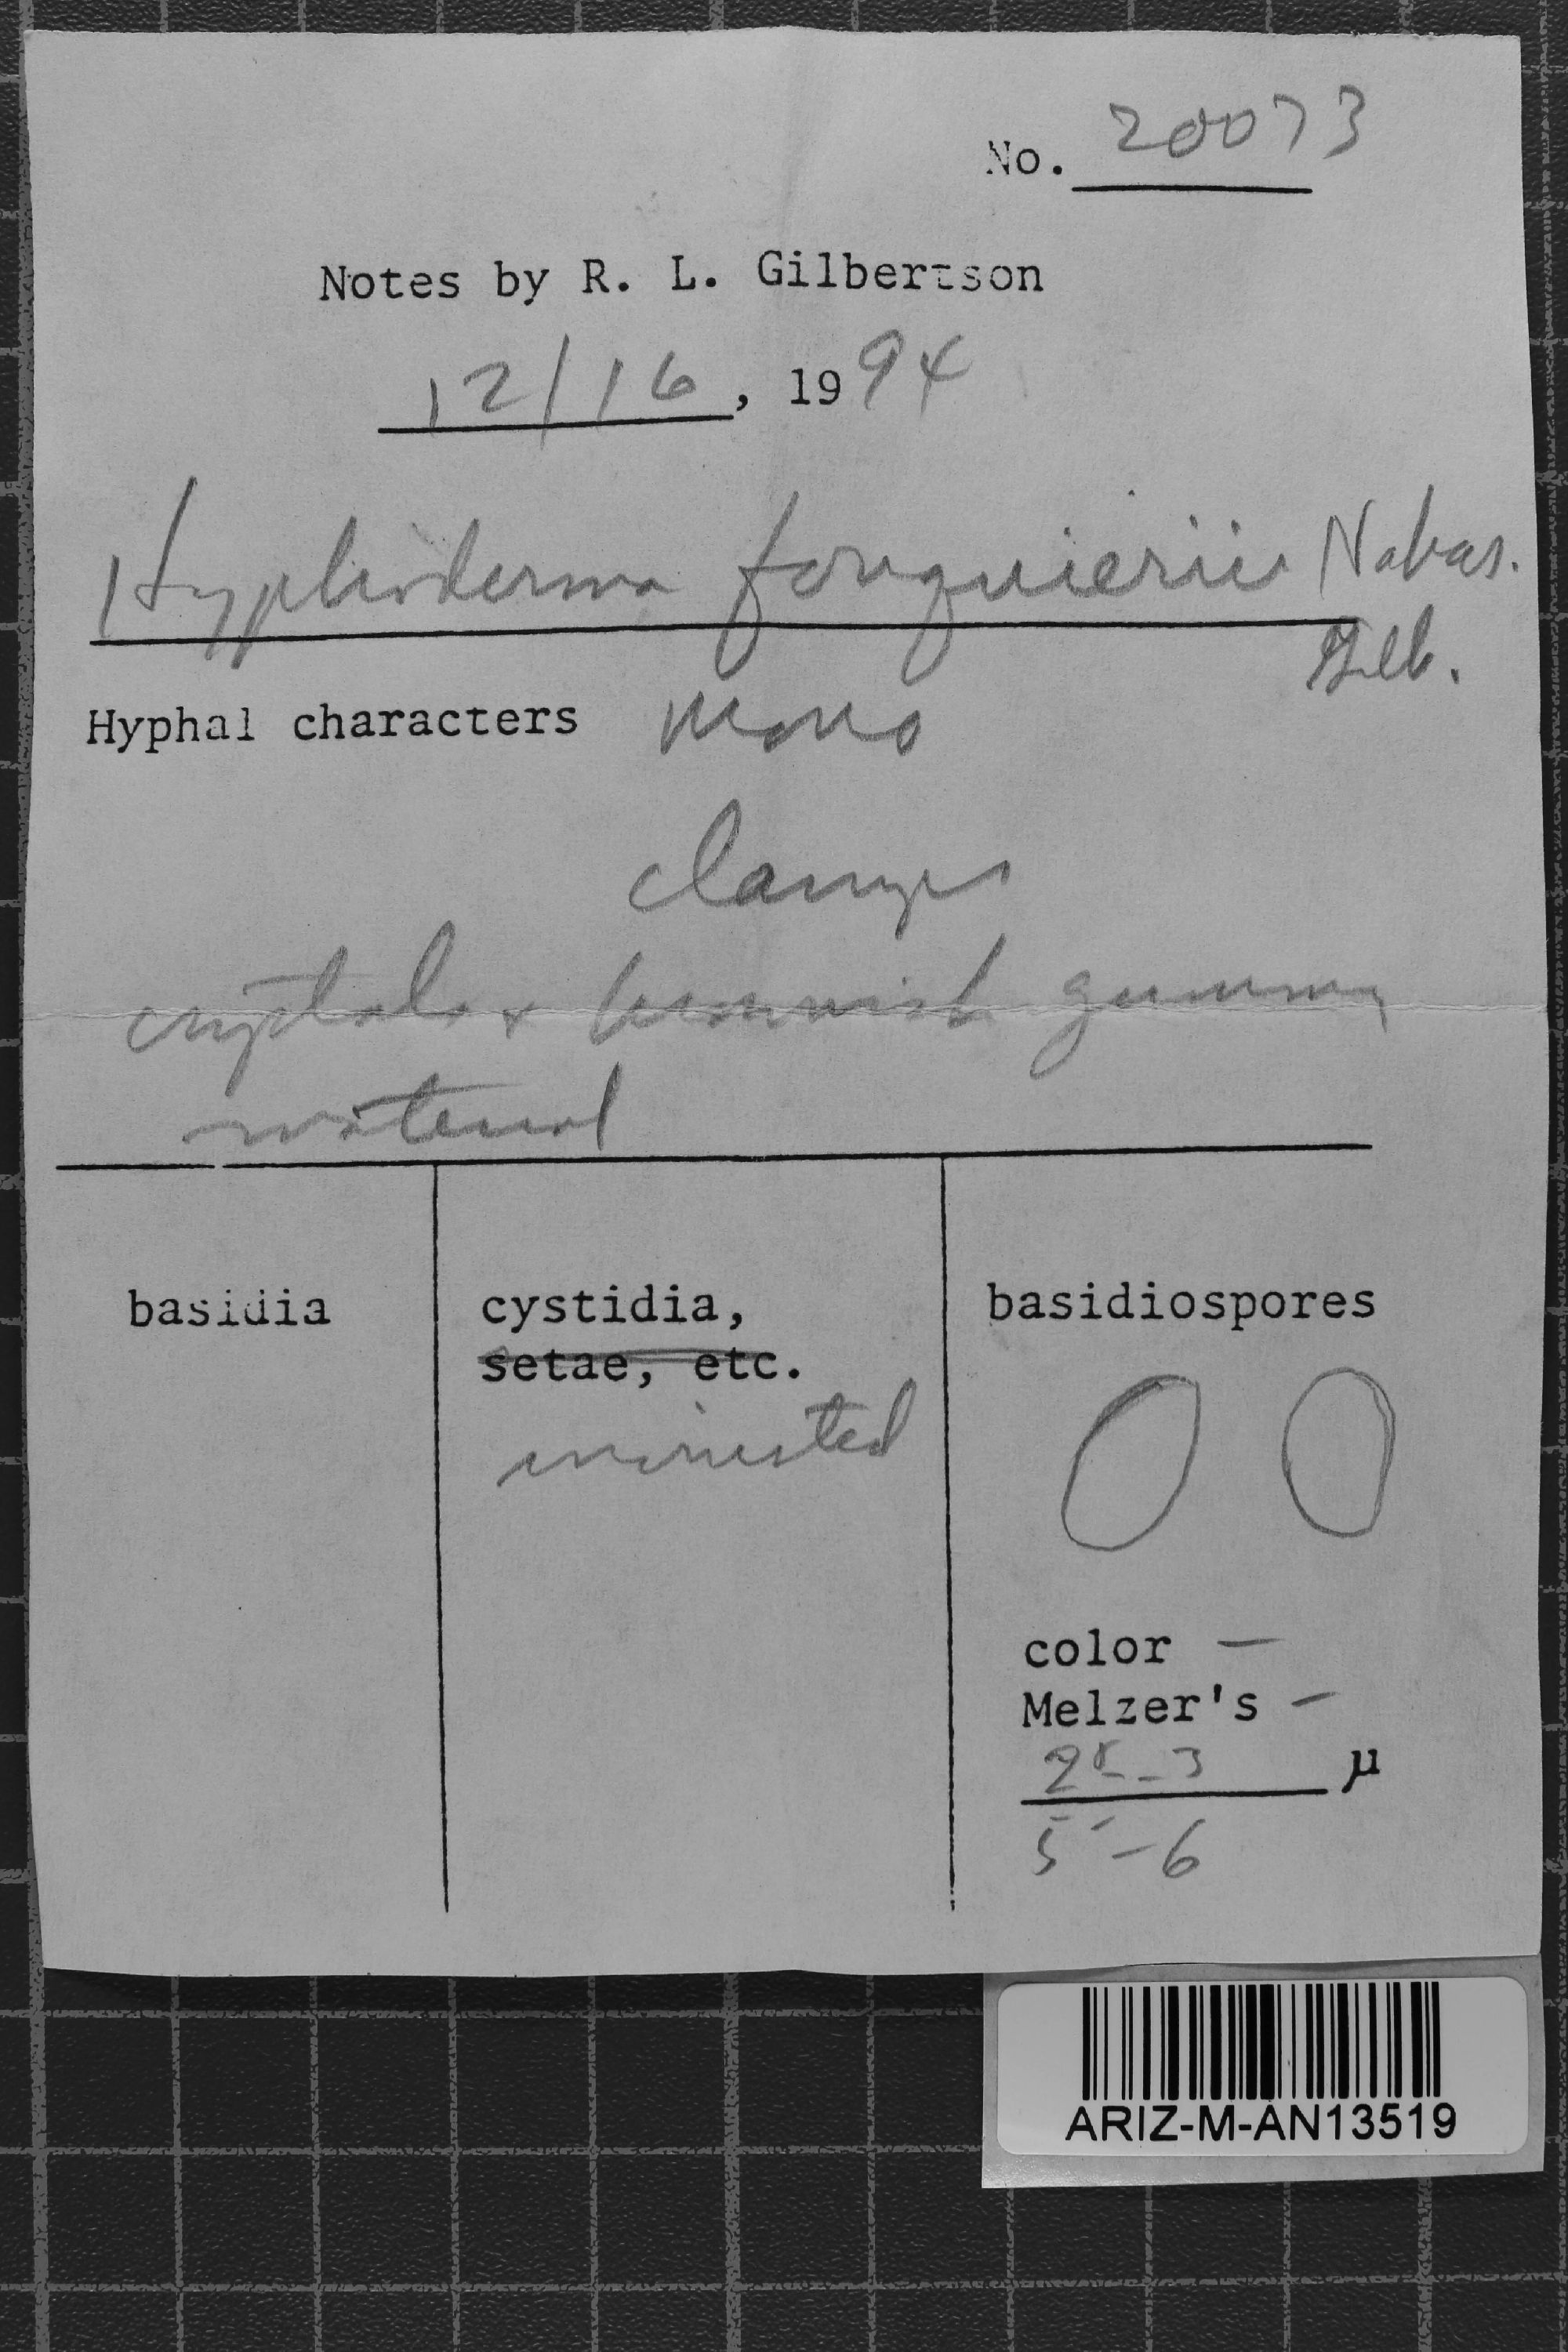 No. 20073
Notes by R. L. Gilbertson
12/16, 1994
Hyphoderma fouquieriae Nakas.
Gilb.
Hyphal characters mono
clamps
crystals + brownish gummy
material
basidia
cystidia,
setae, etc.
encrusted
basidiospores
color –
Melzer's –
25 - 3 µ
5 - 6
ARIZ-M-AN13519